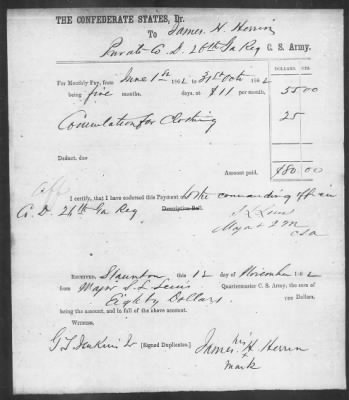 THE CONFEDERATE STATES, Dr.
To James H. Herrin
Private Co D. 26th Ga Reg C. S. Army.
DOLLARS. CTS.
For Monthly Pay, from June 1st 1862 to 31st Oct 1862
being five months. days, at $11 per month, 55 00
Commutation for Clothing 25
Deduct, due
Amount paid. $80.00
I certify, that I have endorsed this Payment to the commanding off in
Co. D. 26th Ga Reg Descriptive Roll.
S L Lewis
Major & QM
CSA
RECEIVED, Staunton this 12 day of November 1862
from Major S. L Lewis Quartermaster C. S. Army, the sum of
Eighty Dollars Dollars.
being the amount, and in full of the above account.
Witness.
[Signed Duplicates.] James H. Herrin
his
+
mark